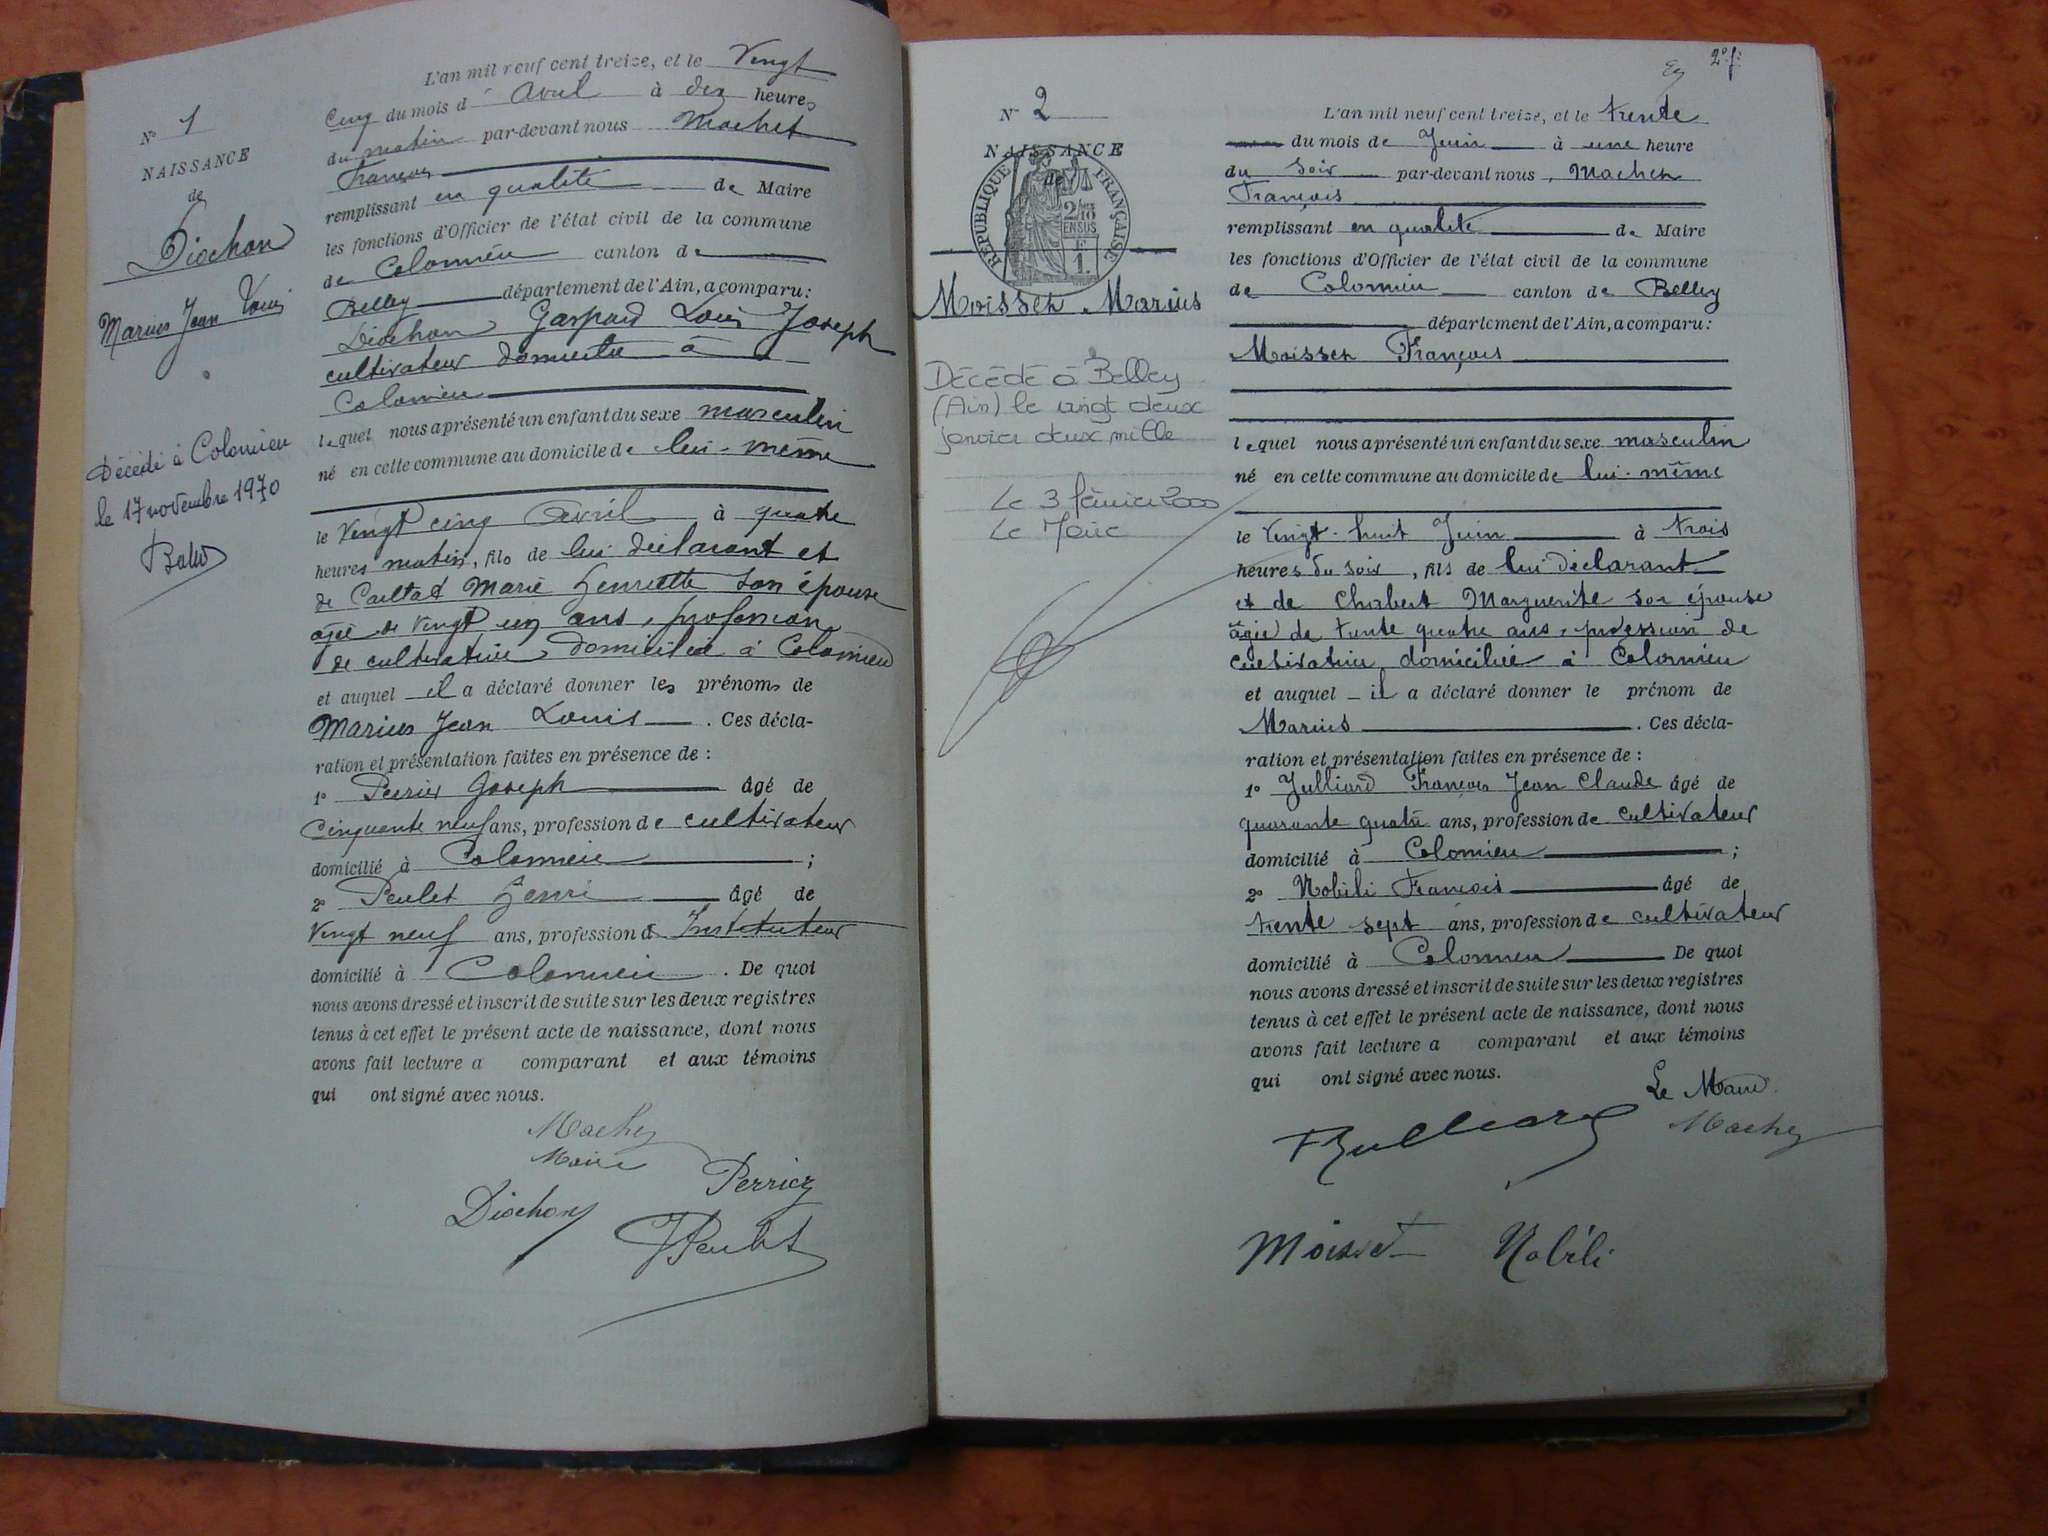 L'an mil neuf cent treize, et le Vingt
Cinq du mois d' Avril à dix heures
du matin par-devant nous Machet
François
remplissant en qualité de Maire
les fonctions d'Officier de l'état civil de la commune
de Colomieu canton de
Belley département de l'Ain, a comparu:
Diochon Gaspard Louis Joseph
cultivateur domicilié à
Colomieu
lequel nous a présenté un enfant du sexe masculin
né en cette commune au domicile de lui-même
le Vingt cinq Avril à quatre
heures matin, fils de lui déclarant et
de Marie Henriette son épouse
agée de Vingt un ans, profession
de cultivatrice domiciliée à Colomieu
et auquel il a déclaré donner les prénoms de
Marius Jean Louis. Ces décla-
ration et présentation faites en présence de :
1º Perrier Joseph âgé de
Cinquante neuf ans, profession de cultivateur
domicilié à Colomieu ;
2º Peulet Henri âgé de
Vingt neuf ans, profession d Instituteur
domicilié à Colomieu. De quoi
nous avons dressé et inscrit de suite sur les deux registres
tenus à cet effet le présent acte de naissance, dont nous
avons fait lecture a comparant et aux témoins
qui ont signé avec nous.
Machet
Maire
Perrier
Diochon
Peulet
Nº 1
NAISSANCE
de
Diochon
Marius Jean Louis
Décédé à Colomieu
le 17 novembre 1970
2º f:
Nº 2
NAISSANCE
de
RÉPUBLIQUE FRANÇAISE
2/10
EN SUS
F
1.
Moisset Marius
Décédé à Belley
(Ain) le vingt deux
janvier deux mille
Le 3 février 2000
Le Maire
L'an mil neuf cent treize, et le trente
du mois de Juin à une heure
du soir par-devant nous, Machet
François
remplissant en qualité de Maire
les fonctions d'Officier de l'état civil de la commune
de Colomieu canton de Belley
département de l'Ain, a comparu:
Moisset François
lequel nous a présenté un enfant du sexe masculin
né en cette commune au domicile de lui-même
le Vingt-huit Juin à trois
heures du soir, fils de lui déclarant
et de Chabert Marguerite son épouse
âgée de trente quatre ans, profession de
cultivatrice, domiciliée à Colomieu
et auquel il a déclaré donner le prénom de
Marius. Ces décla-
ration et présentation faites en présence de :
1º Julliard François Jean Claude âgé de
quarante quatre ans, profession de cultivateur
domicilié à Colomieu ;
2º Nobili François âgé de
trente sept ans, profession de cultivateur
domicilié à Colomieu De quoi
nous avons dressé et inscrit de suite sur les deux registres
tenus à cet effet le présent acte de naissance, dont nous
avons fait lecture a comparant et aux témoins
qui ont signé avec nous.
Le Maire
Machet
Julliard
Moisset Nobili